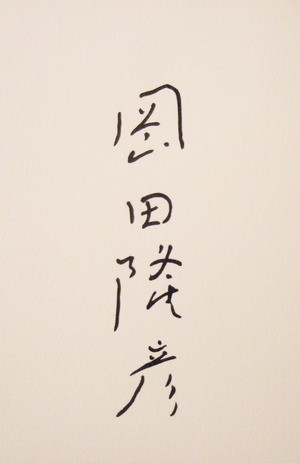 岡田隆彦